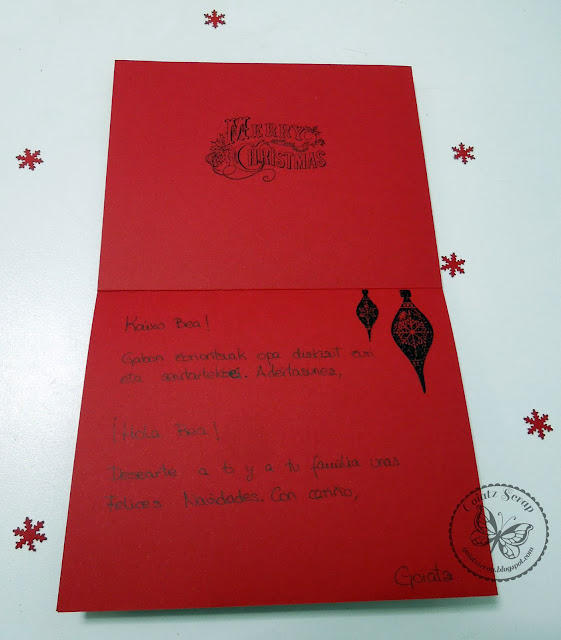 MERRY
CHRISTMAS
Kaixo Bea!
Gabon zoriontsuak opa dizkizut zuri
eta senitartekoei. Adeitasunez,
¡Hola Bea!
Desearte a ti y a tu familia unas
felices Navidades. Con cariño,
Goiatz
Goiatz Scrap
goiatzscrap.blogspot.com